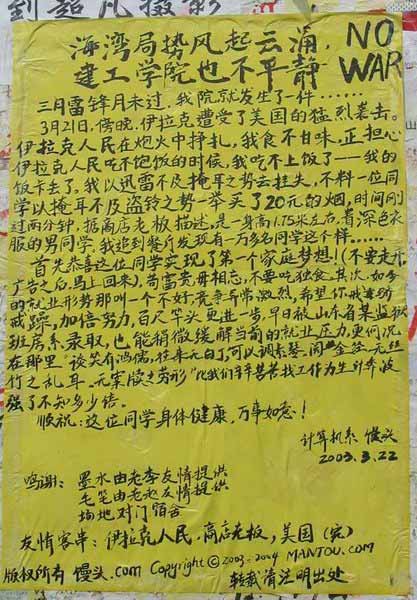 到超凡摄影
海湾局势风起云涌，
建工学院也不平静
NO
WAR
三月雷锋月未过，我院就发生了一件……
3月21日，傍晚，伊拉克遭受了美国的猛烈袭击。
伊拉克人民在炮火中挣扎，我食不甘味，正担心
伊拉克人民吃不饱饭的时候，我吃不上饭了——我的
饭卡丢了。我以迅雷不及掩耳之势去挂失，不料一位同
学以掩耳不及盗铃之势一举买了20元的烟，时间刚
过两分钟，据商店老板描述，是一身高1.75米左右，着深色衣
服的男同学，我追到餐厅发现有一万多名同学这个样……
首先恭喜这位同学实现了第一个家庭梦想！（不要走开，
广告之后，马上回来）。苟富贵毋相忘，不要吃独食。其次，如今
的就业形势那叫一个不好，竞争异常激烈，希望你戒骄
戒躁，加倍努力，百尺竿头更进一步，早日被山东省某监狱
班房系录取，也能稍微缓解当前的就业压力，更何况
在那里“谈笑有鸿儒，往来无白丁，可以调素琴，阅金经，无丝
竹之乱耳，无案牍之劳形”比我们辛辛苦苦找工作为生计奔波
强了不知多少倍。
顺祝：这位同学身体健康，万事如意！
计算机系 馒头
2003.3.22
鸣谢：墨水由老李友情提供
毛笔由老赵友情提供
场地对门宿舍
友情客串：伊拉克人民，商店老板，美国（宪）
版权所有 馒头.com Copyright © 2003-2004 MANTOU.COM
转载请注明出处